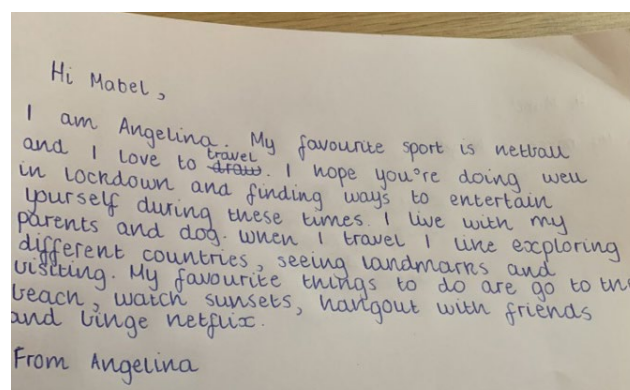 Hi Mabel,
I am Angelina. My favourite sport is netball
and I love to travel draw. I hope you're doing well
in lockdown and finding ways to entertain
yourself during these times. I live with my
parents and dog. When I travel I like exploring
different countries, seeing landmarks and
visiting. My favourite things to do are go to the
beach, watch sunsets, hangout with friends
and binge netflix.
From Angelina